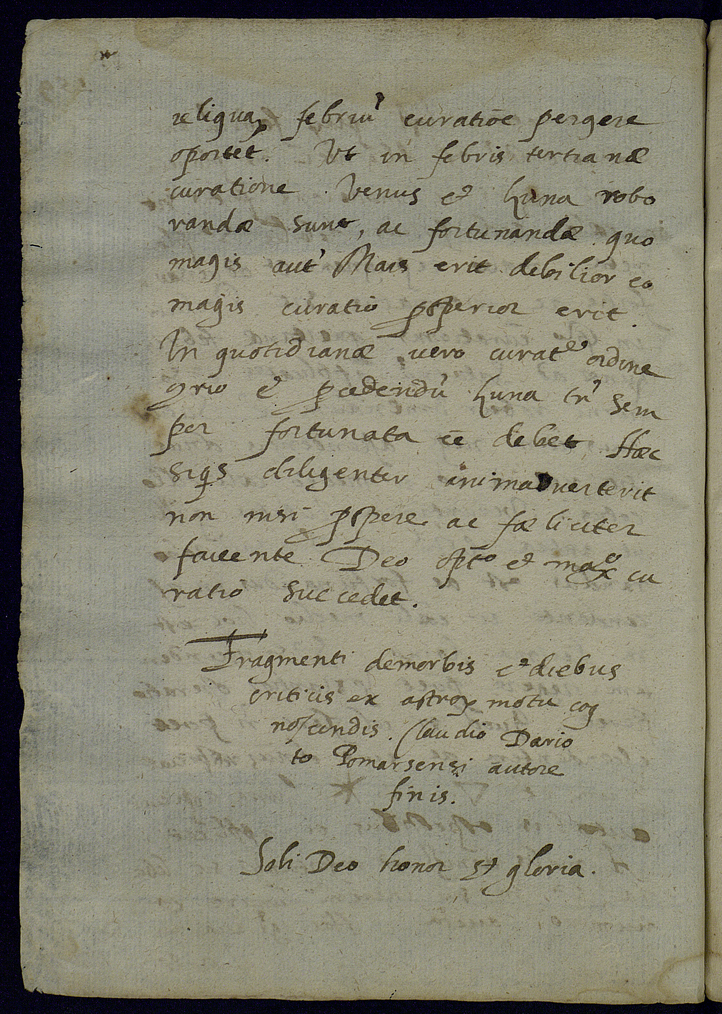 reliquaꝝ febriū curatiōe pergere
oportet. Ut in febris tertianæ
curatione Venus et Luna robo
randæ sunt, ac fortunandæ quo
magis aut̄ Mars erit debilior eo
magis curatio ꝓsperior erit.
In quotidianæ vero curat^e ordine
ꝯrio ē ꝓcedendū Luna tn̄ sem
per fortunata ēē debet. Hæc
siq̄s diligenter animadverterit
non nisi ꝓspere ac fæliciter
favente Deo opt^o et max^o cu
ratio succedet.
Fragmenti de morbis et diebus
criticis ex astroꝝ motu cog
noscendis. Claudio Dario
to Pomarsensi autore
finis.
Soli Deo honor et gloria.